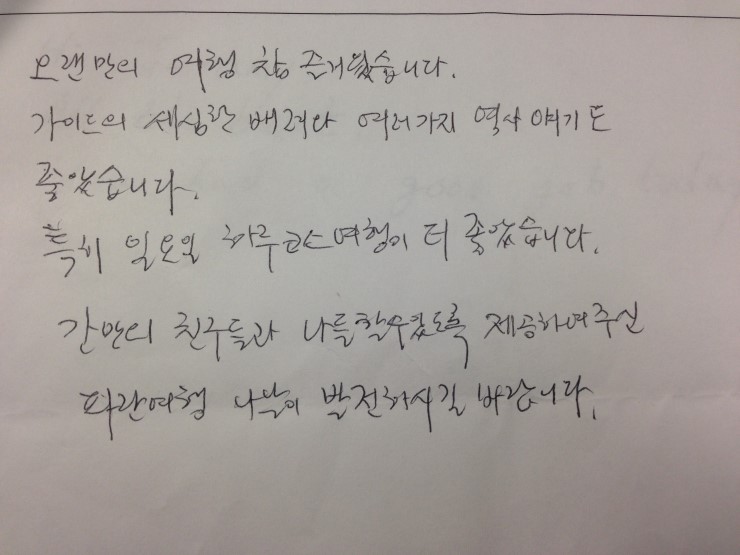 오랜만의 여행 참 즐거웠습니다.
가이드의 세심한 배려와 여러가지 역사 얘기도
좋았습니다.
특히 일요일 하루코스여행이 더 좋았습니다.
간만의 친구들과 나들할수있도록 제공하여주신
파란여행 나날이 발전하시길 바랍니다.